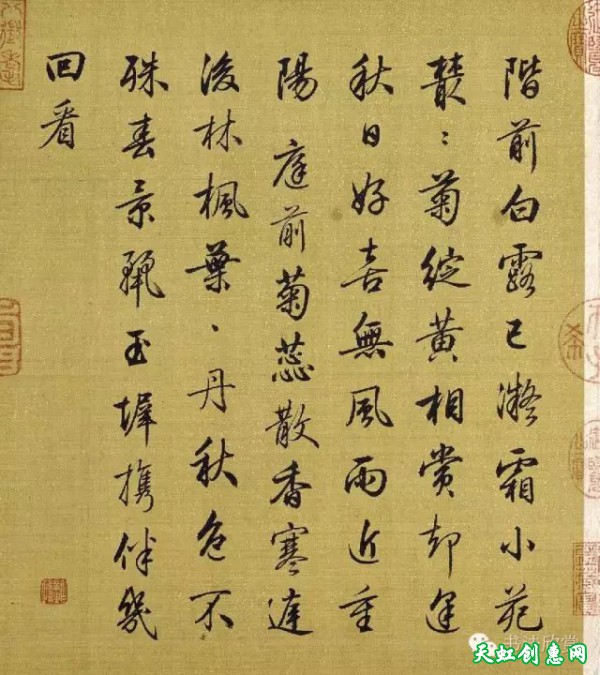 階前白露已凝霜小苑
叢〻菊綻黃相賞却逢
秋日好喜無風雨近重
陽 庭前菊蕊散香寒遶
後林楓葉、丹秋色不
殊春景麗玉墀携伴幾
回看
书法欣赏
天虹创惠网